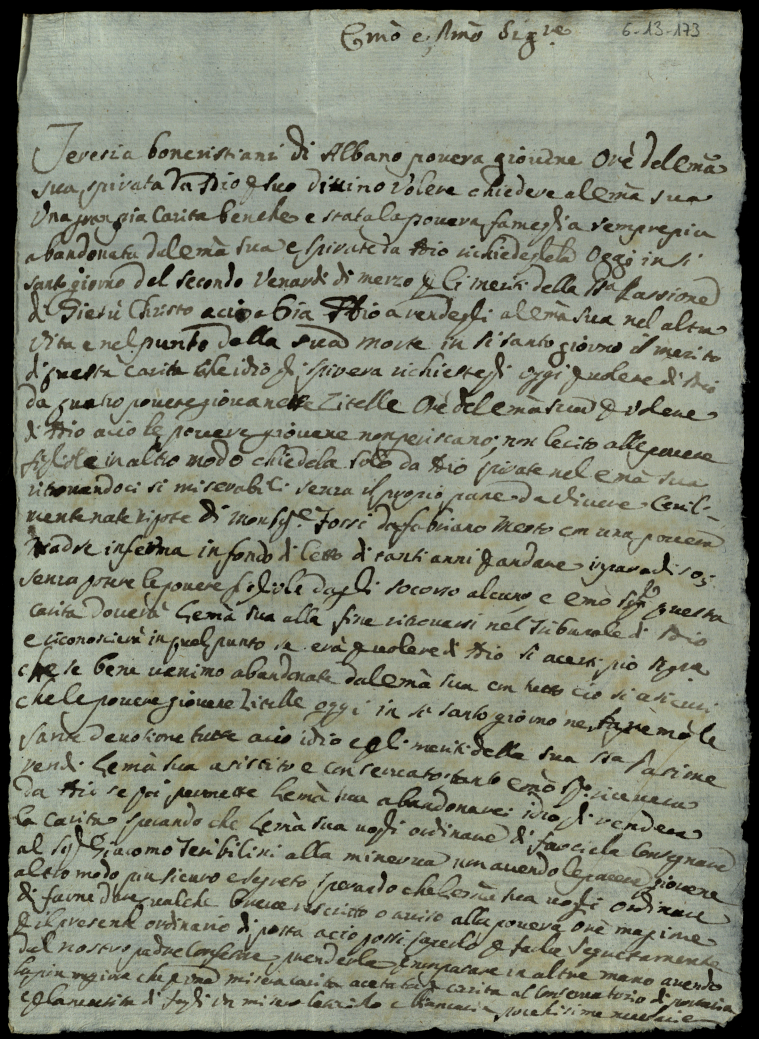 Emo e; Rmo Sigre 6-13-173
Teresia boncristiani di Albano povera gioudne Orè delema
sua, spirata da Dio e suo diuino Volere chiedere alema sua
Una grazia Carita benche e stata la povera fameglia sempre piu
abandonata dalema sua e spirate da Dio richiedegleli Oggi in si
santo giorno del secondo Venardi di merzo p li meriti della ssa Passione
di Giesu Christo acio abia Dio a rendegli alema sua nel altra
Vita e nel punto della sua morte in si santo giorno il merito
di questa carita che idio gli spirera richiestegli oggi p volere di Dio
da quatro povere giovanette Zitelle Orè delema sua p volere
di Dio acio le povere giovene non periscano; non lecito alle povere
figliole in altro modo chiedela solo da Dio spirate nel ema sua
ritrovandoci si miserabili senza il proprio pane da vivere Ceuil-
mente nate nipote di Monsigr da fabriano Morto con una povera
Madre inferma in fondo di letto di tanti anni p andare in paradiso;
senza avere le povere figliole dagli socorso alcuno e emo sigr questa
carita doverà lema sua alla fine ritrovarsi nel Tribunale di Dio
e riconoscierà in quel punto se erà p volere di Dio si acerti pio sigre
che se bene venimo abandonate dalema sua con tutto cio si asicuri
che le povere giovene Zitelle oggi in si santo giorno ne faremo le
sante devotione tutte acio idio p gli meriti della sua ssa Pasione
rendi lema sua asistito e conservato tanto emo sigr ricevera
da Dio se poi permette lema sua abandonarci idio gli rendera
la carita sperando che lema sua vogli ordinare di farcela Consegnare
al sigr Giacomo Teribilini alla minerva non avendo le povere giovene
altro modo piu sicuro e segreto sperando che lema sua vogli ordinare
di farne dare qualche breve rescritto o aviso alla povera Orè magime
p il presente ordinario di posta acio possi saperlo p farle segretamente
dal nostro padre Confessore prenderla e non patare in altre mano avendo
la piu magiore che prima misera carita acetata p carita al Conservatorio di
e p la necesita di fagli un misero e biancaria pochisime necesarie